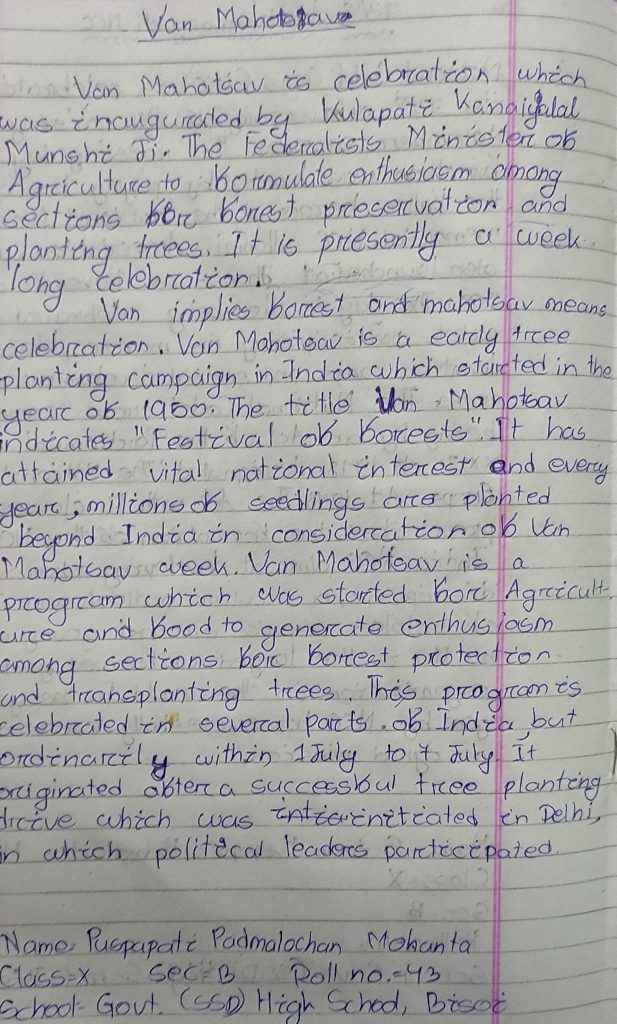 Van Mahotsav
Van Mahotsav is celebration which
was inaugurated by Kulapati Kanaiyalal
Munshi Ji. The Federalists Minister of
Agriculture to formulate enthusiasm among
sections for forest preservation and
planting trees. It is presently a week
long celebration.
Van implies forrest and mahotsav means
celebration. Van Mahotsav is a early tree
planting campaign in India which started in the
year of 1960. The title Van Mahotsav
indicates "Festival of forests". It has
attained vital national interest and every
year, millions of seedlings are planted
beyond India in consideration of Van
Mahotsav week. Van Mahotsav is a
program which was started for Agricult-
ure and food to generate enthusiasm
among sections for forrest protection
and transplanting trees. This program is
celebrated in several parts. of India, but
ordinarily within 1 July to 7 July. It
originated after a successful tree planting
drive which was in Delhi,
in which political leaders participated.
Name- Puspapati Padmalochan Mohanta
Class-X Sec-B Roll no.-43
School- Govt. (SSD) High School, Bisoi